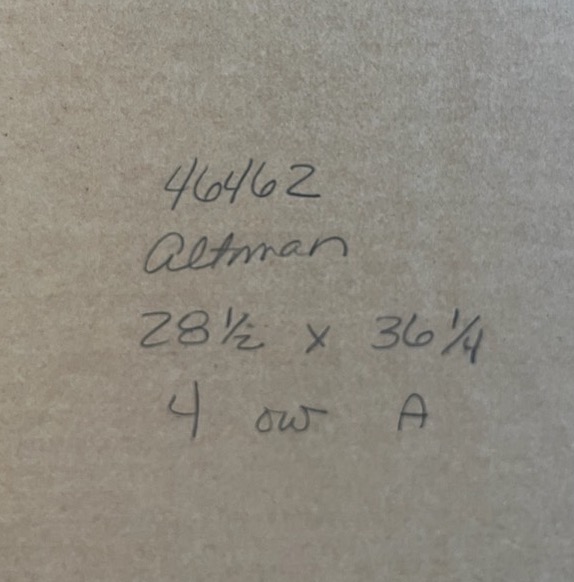 46462
Altman
28 1/2 x 36 1/4
4 ow A